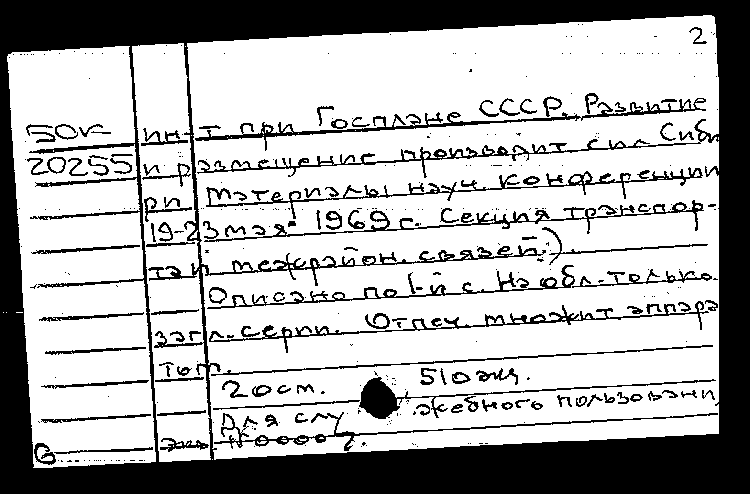 2
50к ин-т при Госплане СССР. Развитие
20255 и размещение производит сил Сиби
ри Материалы науч. конференции
19-23 мая 1969 г. Секция транспор-
та и межрайон. связей.).
Описано по 1-й с. На обл. только
загл. серии. Отпеч. множит аппара
том.
20 ст. 510 экз.
Для служебного пользовани
экз №00002.